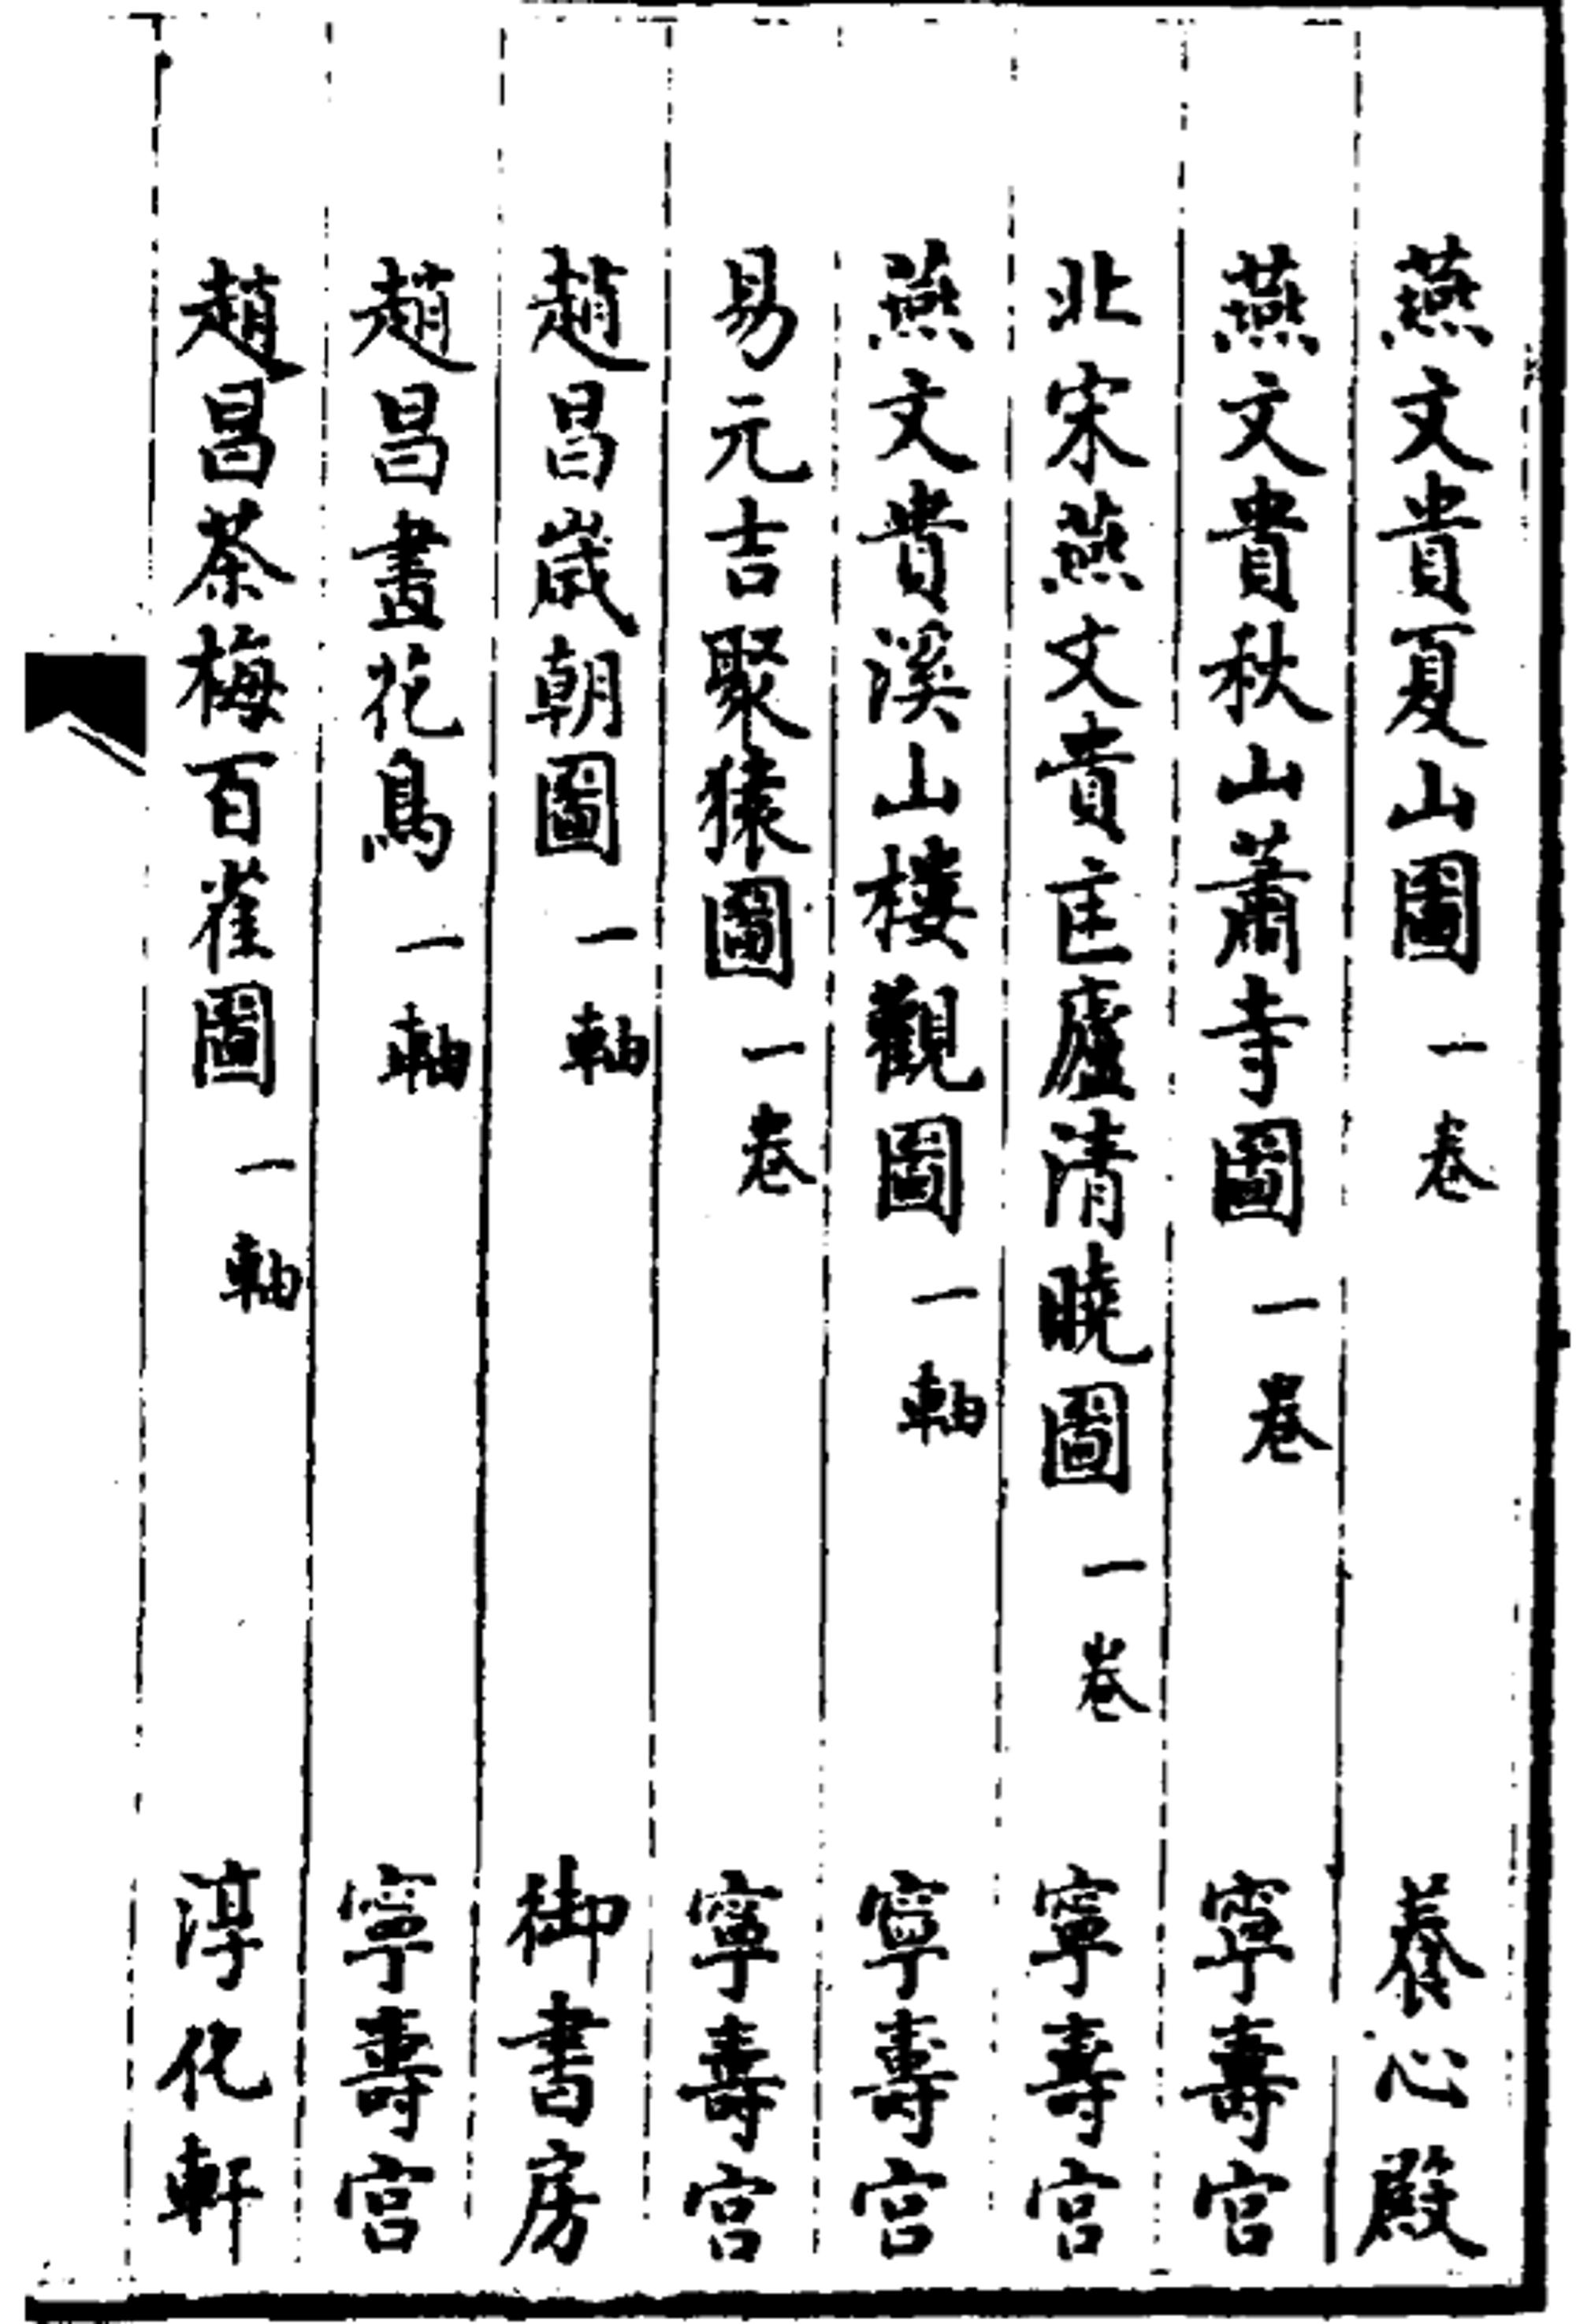 燕文貴夏山圖一卷 養心殿
燕文貴秋山蕭寺圖一卷 寧壽宮
北宋燕文貴匡廬清曉圖一卷 寧壽宮
燕文貴溪山樓觀圖一軸 寧壽宮
易元吉聚猿圖一卷 寧壽宮
趙昌歲朝圖一軸 御書房
趙昌畫花鳥一軸 寧壽宮
趙昌茶梅百雀圖一軸 淳化軒